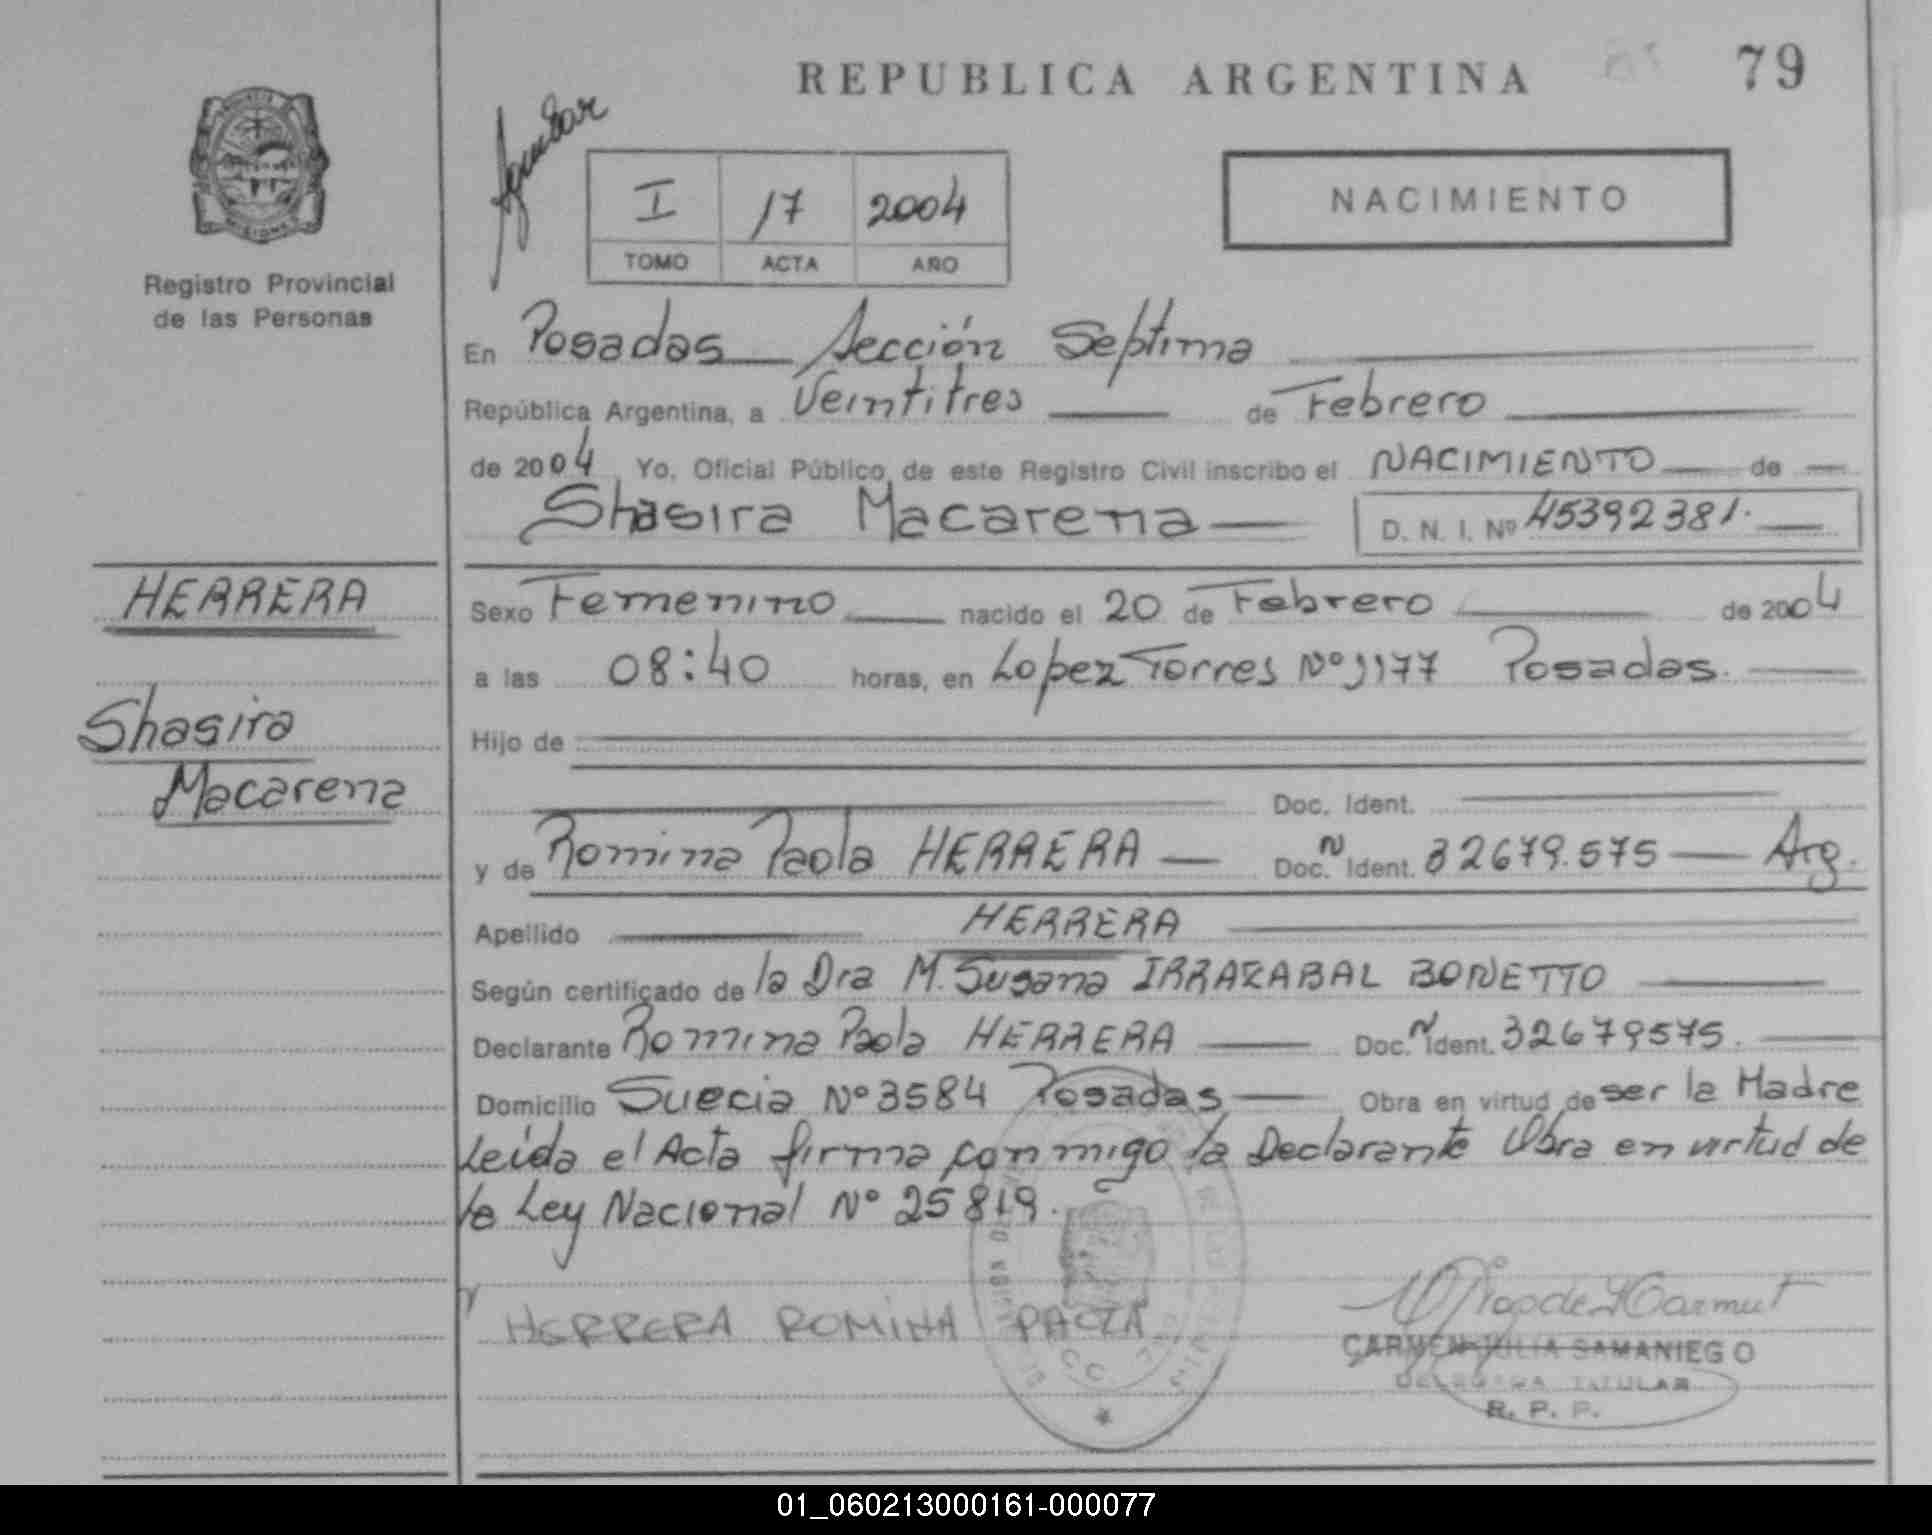 REPUBLICA ARGENTINA
79
I 17 2004
TOMO ACTA AÑO
NACIMIENTO
Registro Provincial
de las Personas
En Posadas Sección Septima
República Argentina, a Veintitres de Febrero
de 2004 Yo, Oficial Público de este Registro Civil inscribo el NACIMIENTO de
Shasira Macarena D. N. I. Nº 45392381.
HERRERA
Shasira
Macarena
Sexo Femenino nacido el 20 de Febrero de 2004
a las 08:40 horas, en Lopez Torres Nº 1177 Posadas.
Hijo de
Doc. Ident.
y de Romina Paola HERRERA Doc. N Ident. 32679.575 Arg.
Apellido HERRERA
Según certificado de la Dra M. Susana IRRAZABAL BONETTO
Declarante Romina Paola HERRERA Doc. N Ident. 32679575.
Domicilio Suecia Nº 3584 Posadas Obra en virtud de ser la Madre
Leida el Acta firma conmigo la Declarante Obra en virtud de
la Ley Nacional Nº 25819.
HERRERA ROMINA PAOLA
CARMEN JULIA SAMANIEGO
DELEGADA TITULAR
R. P. P.
01_060213000161-000077